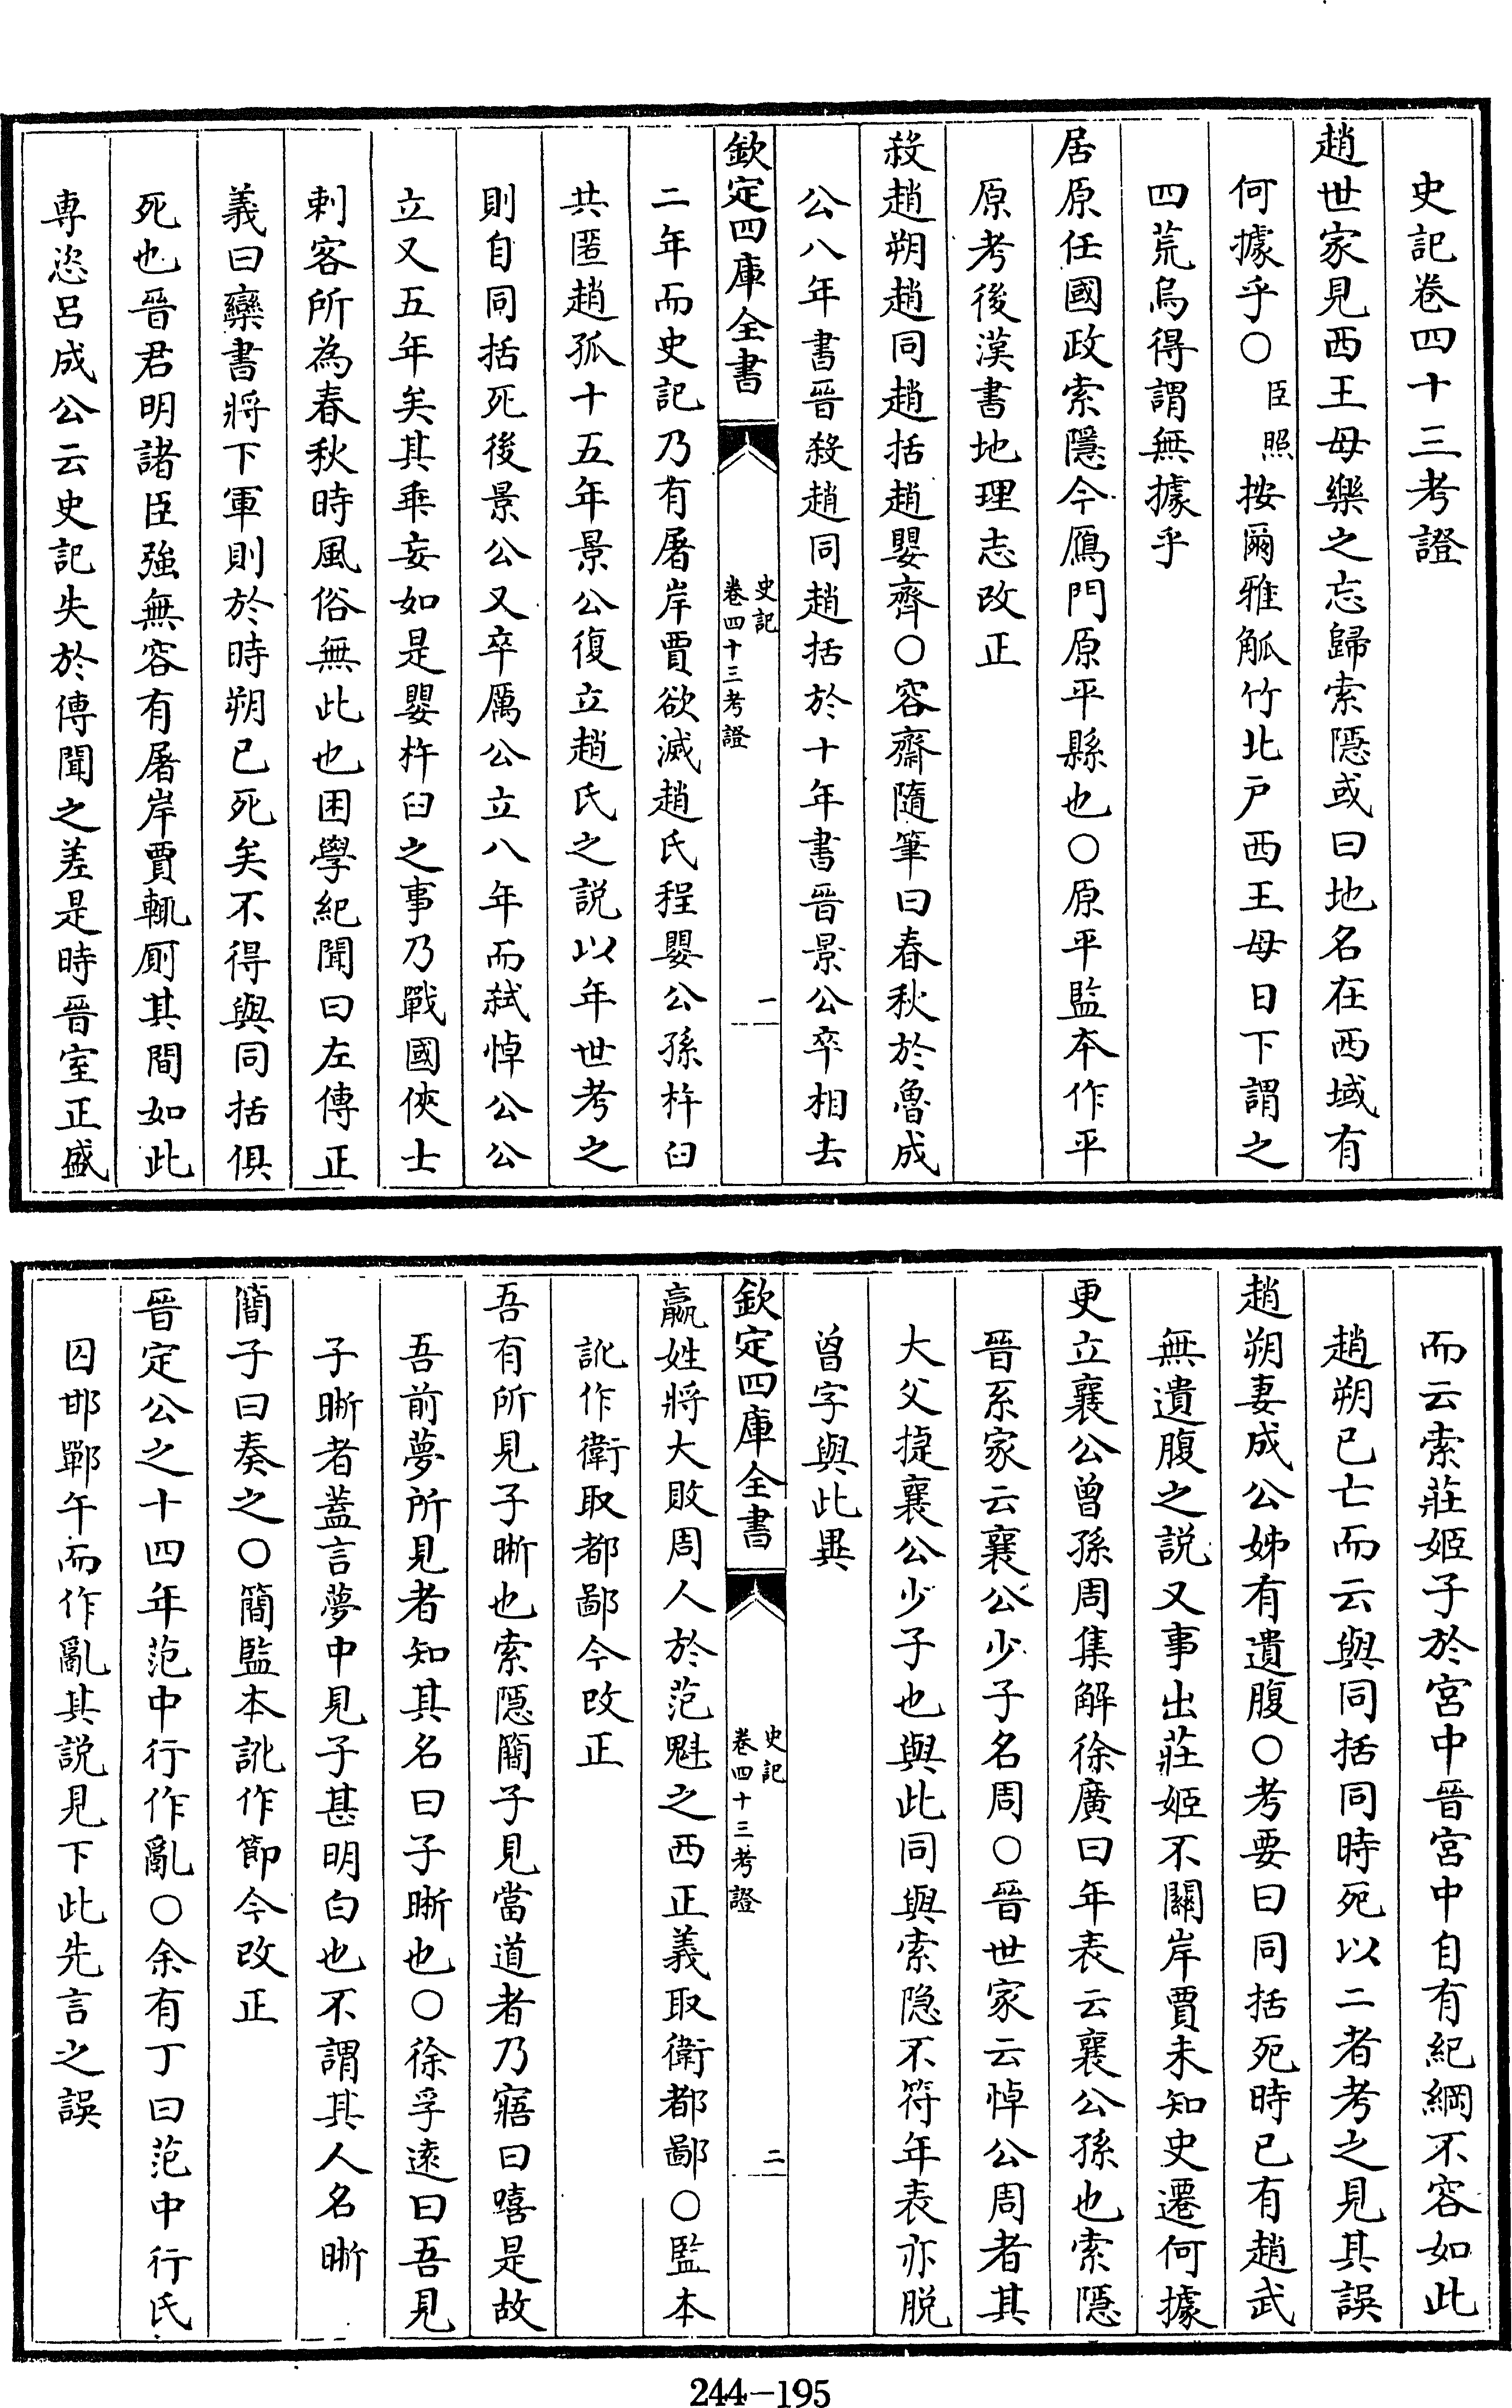 史記卷四十三考證
趙世家見西王母樂之忘歸索隱或曰地名在西域有
何據乎○臣照按爾雅觚竹北戸西王母日下謂之
四荒烏得謂無據乎
居原任國政索隱今鴈門原平縣也○原平監本作平
原考後漢書地理志改正
殺趙朔趙同趙括趙嬰齊○容齋隨筆曰春秋於魯成
公八年書晉殺趙同趙括於十年書晉景公卒相去
欽定四庫全書
史記
卷四十三考證
一
二年而史記乃有屠岸賈欲滅趙氏程嬰公孫杵臼
共匿趙孤十五年景公復立趙氏之説以年世考之
則自同括死後景公又卒厲公立八年而弑悼公公
立又五年矣其乖妄如是嬰杵臼之事乃戰國俠士
刺客所為春秋時風俗無此也困學紀聞曰左傳正
義曰欒書將下軍則於時朔已死矣不得與同括俱
死也晉君明諸臣強無容有屠岸賈輒厠其間如此
専恣呂成公云史記失於傳聞之差是時晉室正盛
而云索莊姬子於宮中晉宮中自有紀綱不容如此
趙朔已亡而云與同括同時死以二者考之見其誤
趙朔妻成公姊有遺腹○考要曰同括死時已有趙武
無遺腹之説又事出莊姬不關岸賈未知史遷何據
更立襄公曾孫周集解徐廣曰年表云襄公孫也索隱
晉系家云襄公少子名周○晉世家云悼公周者其
大父捷襄公少子也與此同與索隱不符年表亦脱
曾字與此異
欽定四庫全書
史記
卷四十三考證
二
嬴姓將大敗周人於范魁之西正義取衛都鄙○監本
訛作衛取都鄙今改正
吾有所見子晣也索隱簡子見當道者乃寤曰嘻是故
吾前夢所見者知其名曰子晣也○徐孚遠曰吾見
子晣者蓋言夢中見子甚明白也不謂其人名晣
簡子曰奏之○簡監本訛作節今改正
晉定公之十四年范中行作亂○余有丁曰范中行氏
囚邯鄲午而作亂其説見下此先言之誤
244-195